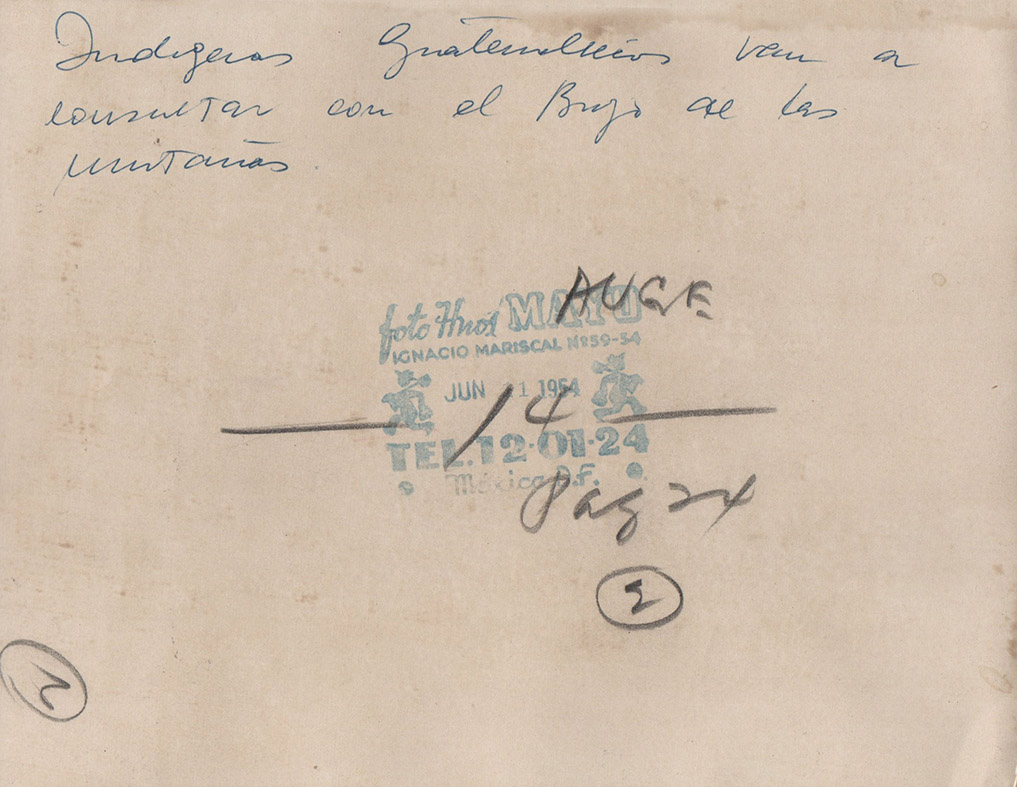 Indigenas Guatemaltecos van a
consultar con el Brujo de las
montañas
AUGE
foto Hnos MAYO
IGNACIO MARISCAL Nº 59-54
JUN 1 1954
14
TEL. 12-01-24
México D.F.
Pag 24
2